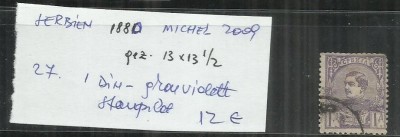 SERBIEN 1880 MICHEL 2009
gez. 13 x 13 1/2
27. 1 Din - grauviolett
stampilat
12 €